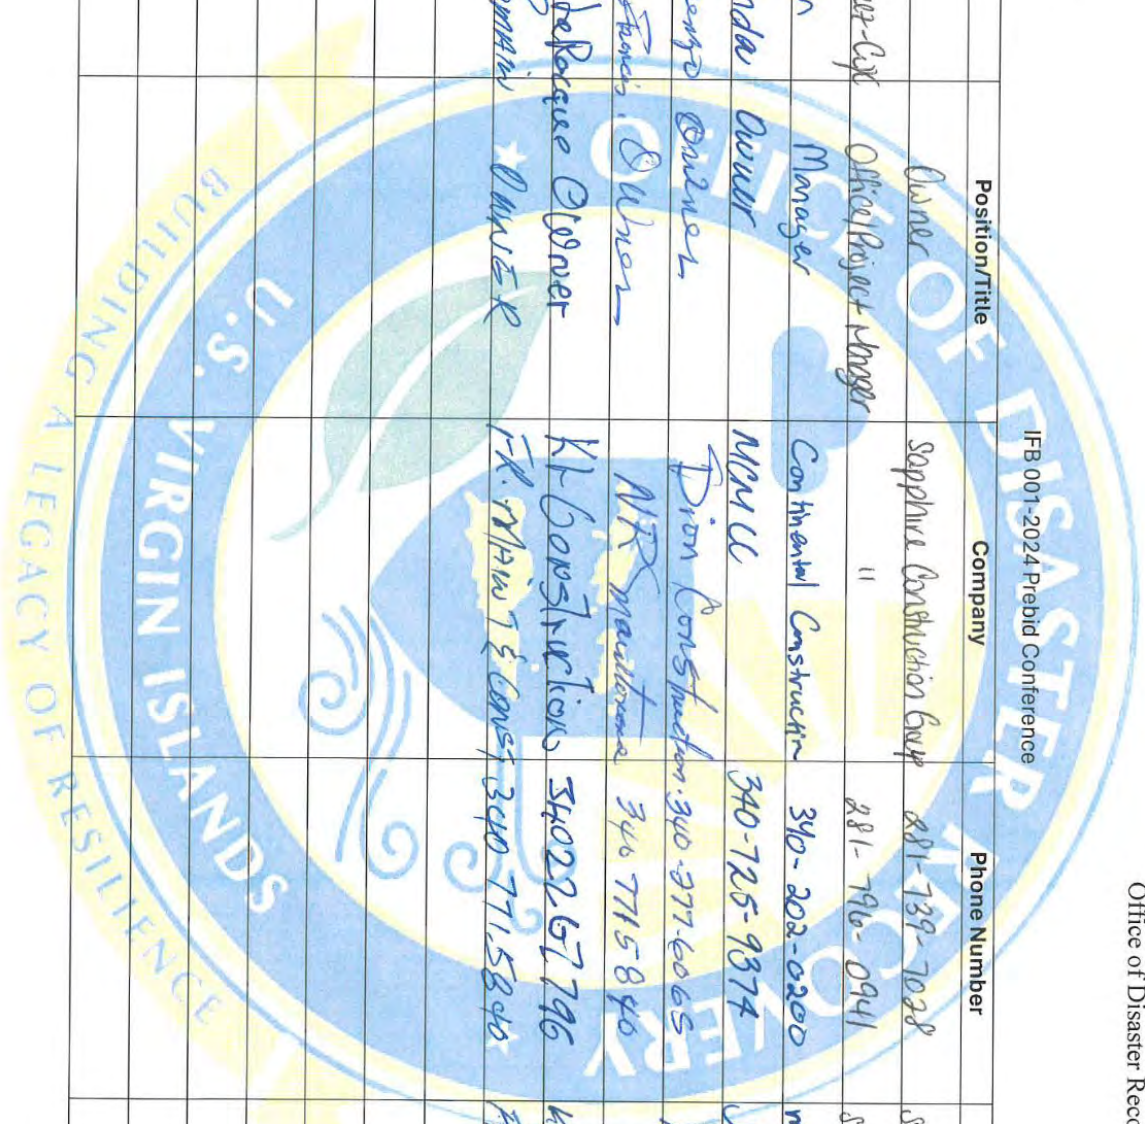 Office of Disaster Reco
IFB 001-2024 Prebid Conference
Position/Title Company Phone Number
Owner Sapphire Construction Group 281-739-7028
Office/Project Manager " 281-796-0941
Manager Continental Construction 340-202-0200
nda Owner MCM LLC 340-725-9374
enzo Owner Dion Construction 340-377-6065
Francis Owner NR 340 7715840
LaRocque Owner KL Construction 3402267796
OWNER FR. MAINT & CONST 340-771-5840
OFFICE OF DISASTER RECOVERY
U.S. VIRGIN ISLANDS
BUILDING A LEGACY OF RESILIENCE